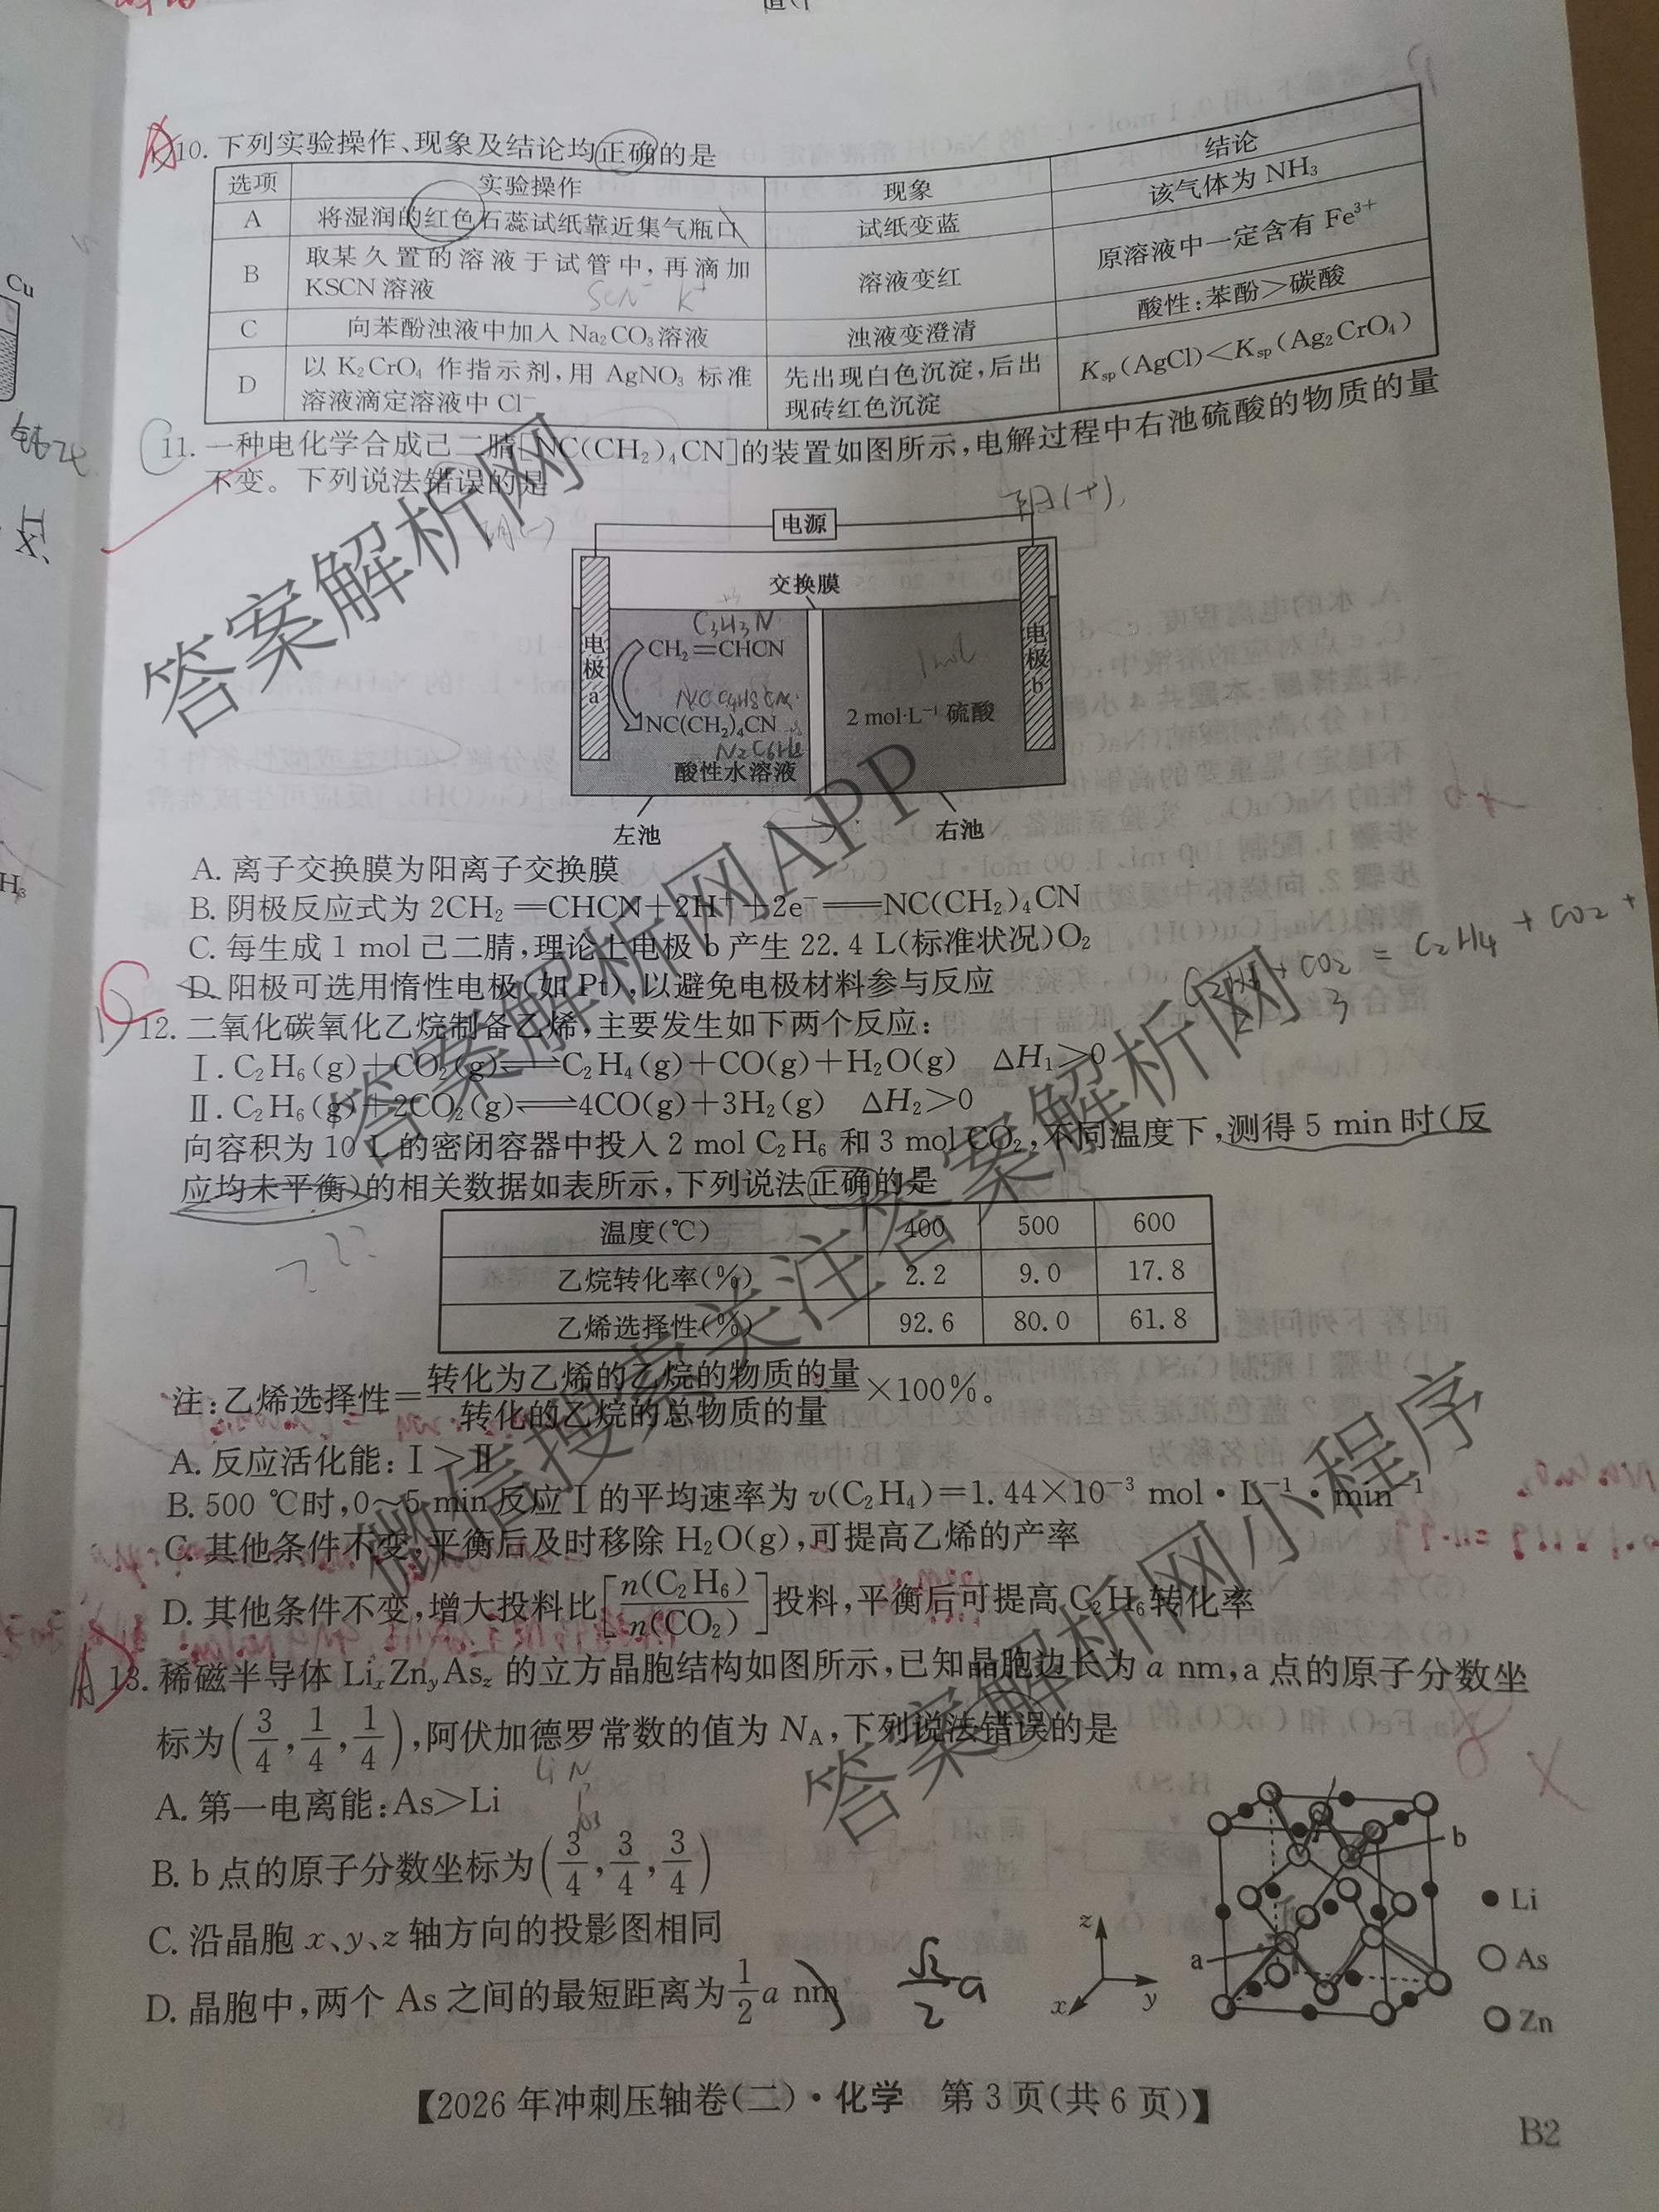 10. 下列实验操作、现象及结论均正确的是
选项 实验操作 现象 结论
A 将湿润的红色石蕊试纸靠近集气瓶口 试纸变蓝 该气体为 NH₃
B 取某久置的溶液于试管中,再滴加 KSCN 溶液 溶液变红 原溶液中一定含有 Fe³⁺
SCN⁻ K⁺
C 向苯酚浊液中加入 Na₂CO₃ 溶液 浊液变澄清 酸性:苯酚>碳酸
D 以 K₂CrO₄ 作指示剂,用 AgNO₃ 标准溶液滴定溶液中 Cl⁻ 先出现白色沉淀,后出现砖红色沉淀 Kₛₚ(AgCl)<Kₛₚ(Ag₂CrO₄)
11. 一种电化学合成己二腈[NC(CH₂)₄CN]的装置如图所示,电解过程中右池硫酸的物质的量
不变。下列说法错误的是
阴(-)
阳(+)
电源
交换膜
电极a
C₃H₃N
CH₂=CHCN
NC(CH₂)₄CN
酸性水溶液
1mol
2 mol·L⁻¹ 硫酸
电极b
左池
右池
A. 离子交换膜为阳离子交换膜
B. 阴极反应式为 2CH₂=CHCN+2H⁺+2e⁻══NC(CH₂)₄CN
C. 每生成 1 mol 己二腈,理论上电极 b 产生 22.4 L(标准状况)O₂
D. 阳极可选用惰性电极(如 Pt),以避免电极材料参与反应
12. 二氧化碳氧化乙烷制备乙烯,主要发生如下两个反应:
Ⅰ. C₂H₆(g)+CO₂(g)⇌C₂H₄(g)+CO(g)+H₂O(g) ΔH₁>0
Ⅱ. C₂H₆(g)+2CO₂(g)⇌4CO(g)+3H₂(g) ΔH₂>0
向容积为 10 L 的密闭容器中投入 2 mol C₂H₆ 和 3 mol CO₂,不同温度下,测得 5 min 时(反
应均未平衡)的相关数据如表所示,下列说法正确的是
温度(℃) 400 500 600
乙烷转化率(%) 2.2 9.0 17.8
乙烯选择性(%) 92.6 80.0 61.8
注:乙烯选择性=转化为乙烯的乙烷的物质的量/转化的乙烷的总物质的量×100%。
A. 反应活化能:Ⅰ>Ⅱ
B. 500 ℃时,0~5 min 反应Ⅰ的平均速率为 v(C₂H₄)=1.44×10⁻³ mol·L⁻¹·min⁻¹
C. 其他条件不变,平衡后及时移除 H₂O(g),可提高乙烯的产率
D. 其他条件不变,增大投料比[n(C₂H₆)/n(CO₂)]投料,平衡后可提高 C₂H₆ 转化率
13. 稀磁半导体 LiₓZnᵧAs_z 的立方晶胞结构如图所示,已知晶胞边长为 a nm,a 点的原子分数坐
标为(3/4,1/4,1/4),阿伏加德罗常数的值为 N_A,下列说法错误的是
A. 第一电离能:As>Li
B. b 点的原子分数坐标为(3/4,3/4,3/4)
C. 沿晶胞 x、y、z 轴方向的投影图相同
D. 晶胞中,两个 As 之间的最短距离为1/2 a nm
√2/2 a
z
x
y
a
b
Li
As
Zn
【2026 年冲刺压轴卷(二)·化学 第 3 页(共 6 页)】
B2
答案解析网
答案解析网APP
微信搜索关注答案解析网
答案解析网小程序